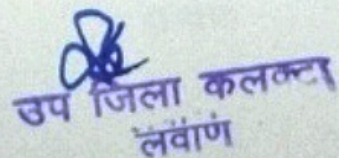 उप जिला कलक्टा
लवाण